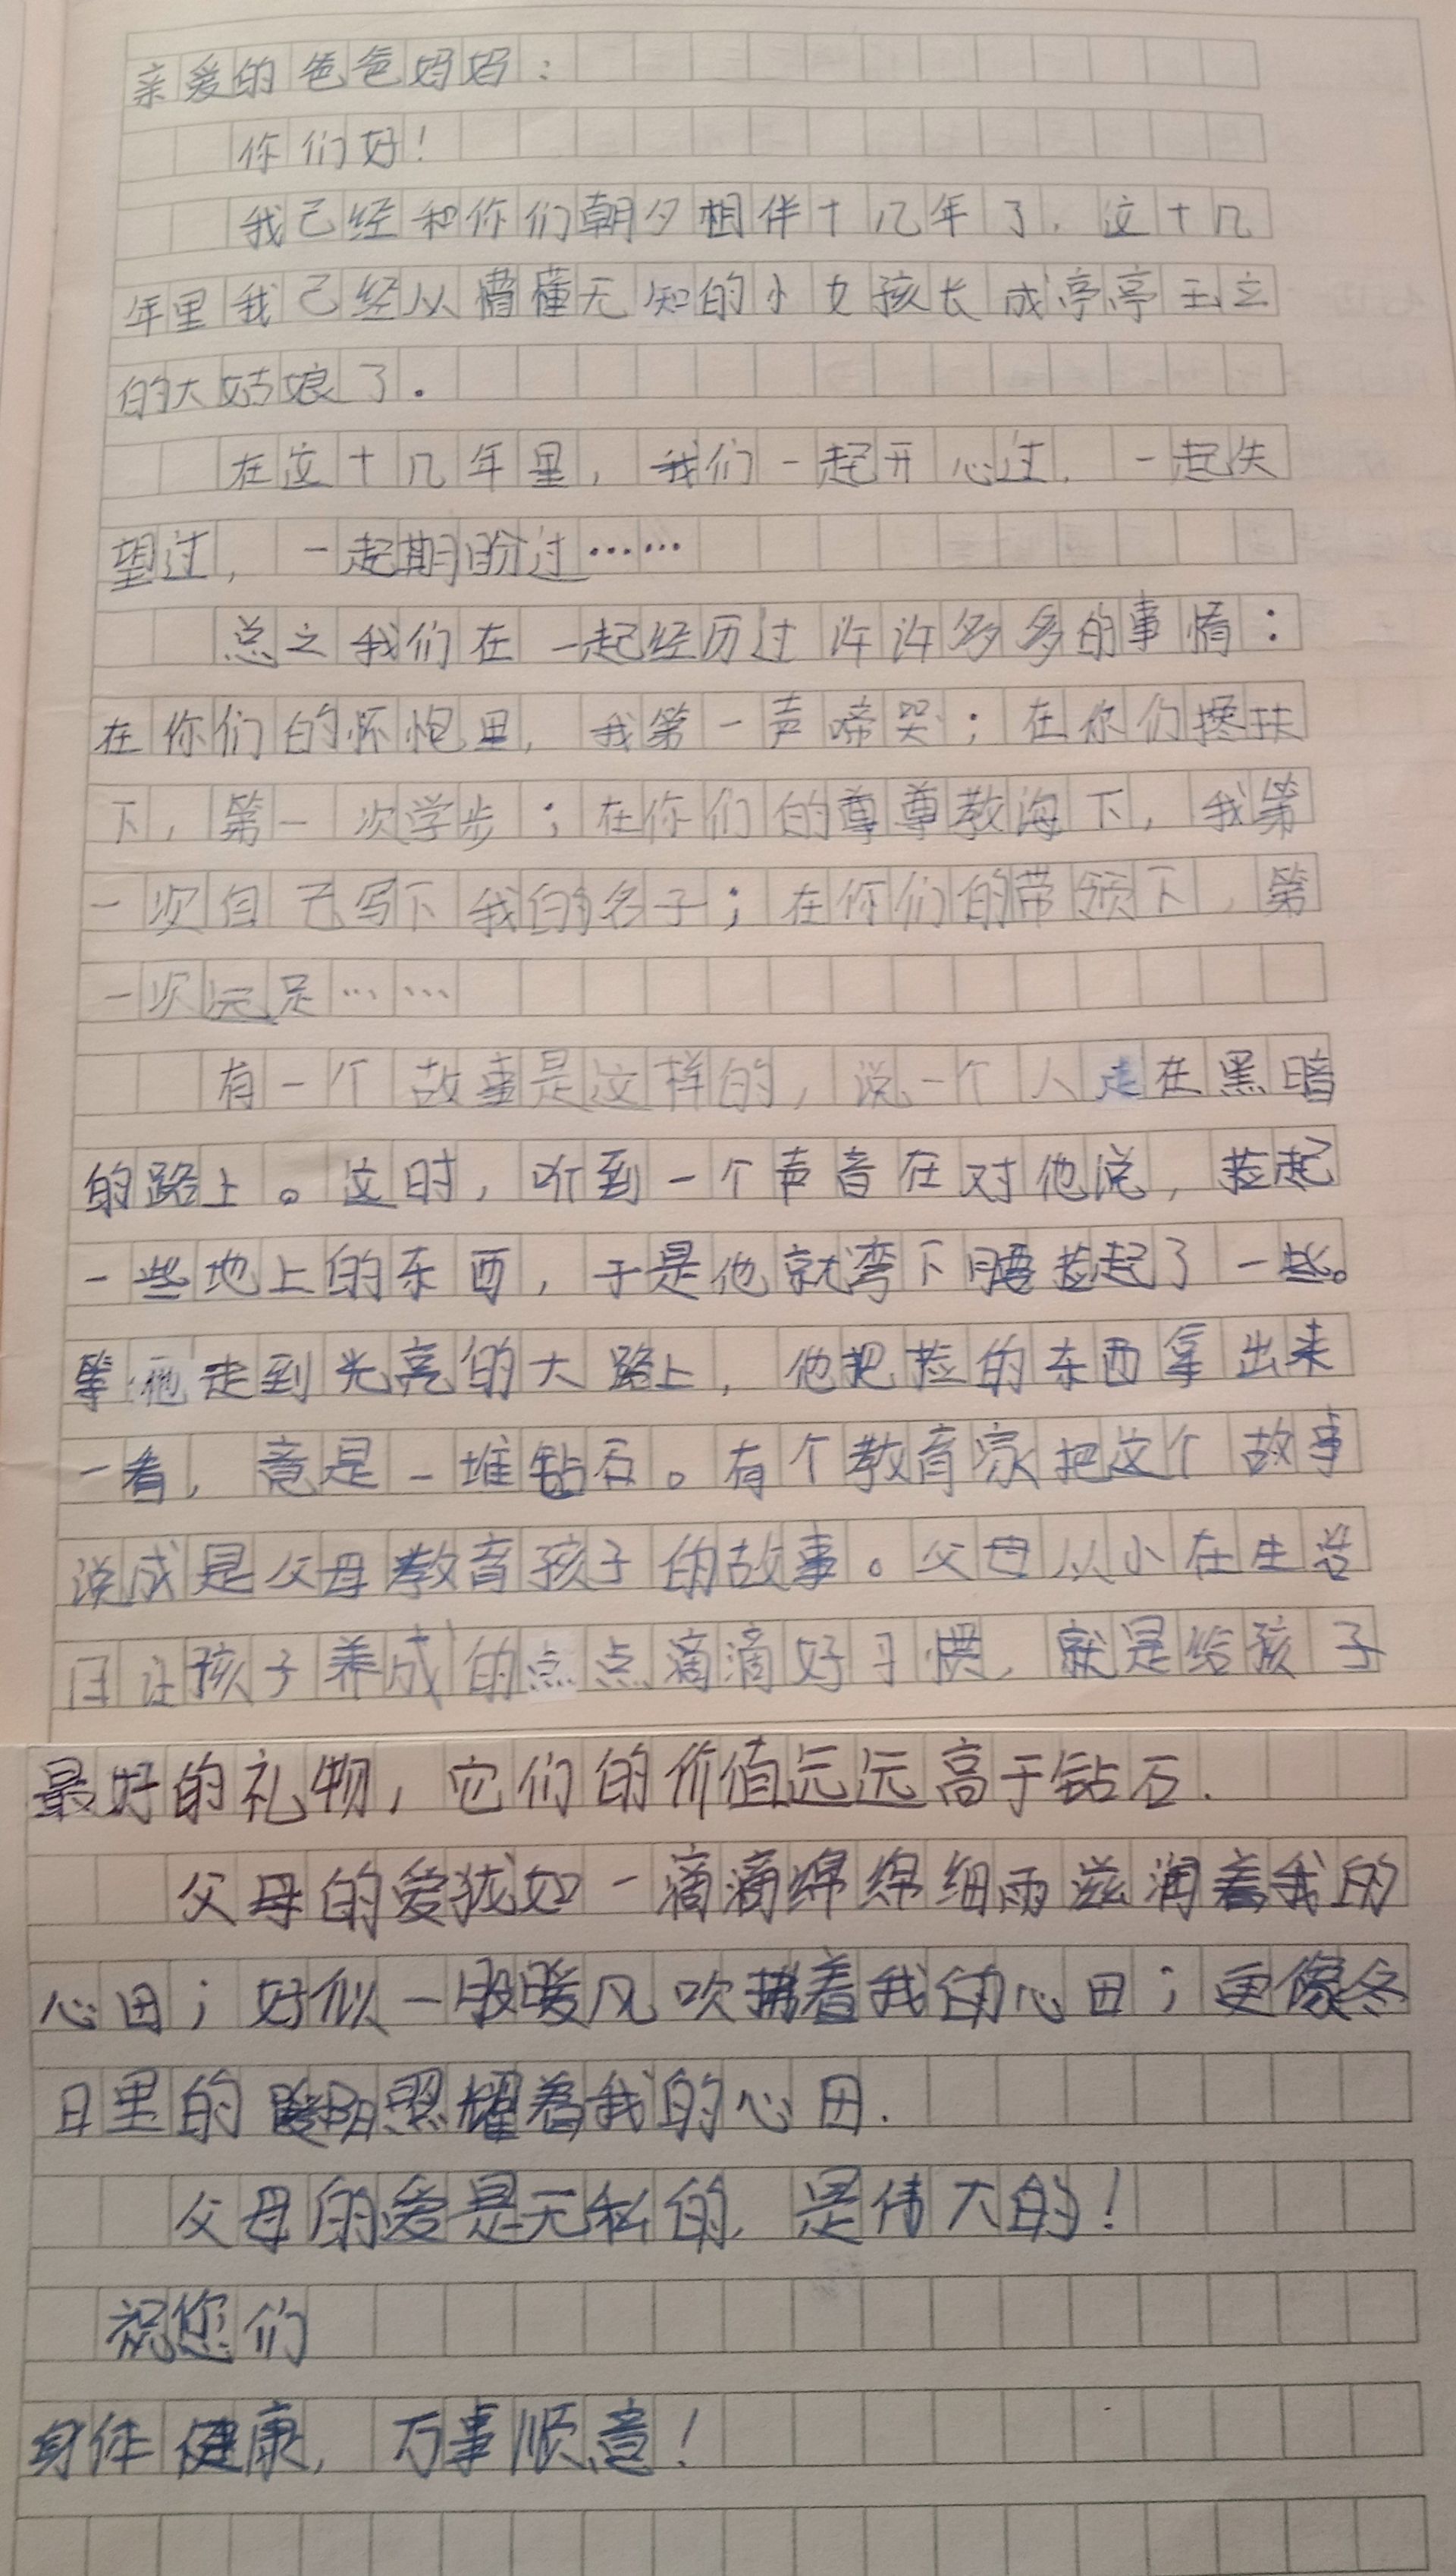 亲爱的爸爸妈妈：
你们好！
我己经和你们朝夕相伴十几年了．这十几
年里我己经从懵懂无知的小女孩长成亭亭玉立
的大姑娘了．
在这十几年里，我们一起开心过，一起失
望过，一起期盼过……
总之我们在一起经历过许许多多的事情：
在你们的怀抱里，我第一声啼哭；在你们搀扶
下，第一次学步；在你们的尊尊教海下，我第
一次自己写下我的名子；在你们的带领下，第
一次远足……
有一个故事是这样的，说一个人走在黑暗
的路上。这时，听到一个声音在对他说，捡起
一些地上的东西，于是他就弯下腰捡起了一些。
等他走到光亮的大路上，他把捡的东西拿出来
一看，竟是一堆钻石。有个教育家把这个故事
说成是父母教育孩子的故事。父母从小在生活
日让孩子养成的点点滴滴好习惯，就是给孩子
最好的礼物，它们的价值远远高于钻石．
父母的爱犹如一滴滴绵绵细雨滋润着我的
心田；好似一股暖风吹拂着我的心田；更像冬
日里的暖阳照耀着我的心田．
父母的爱是无私的，是伟大的！
祝您们
身体健康，万事顺意！